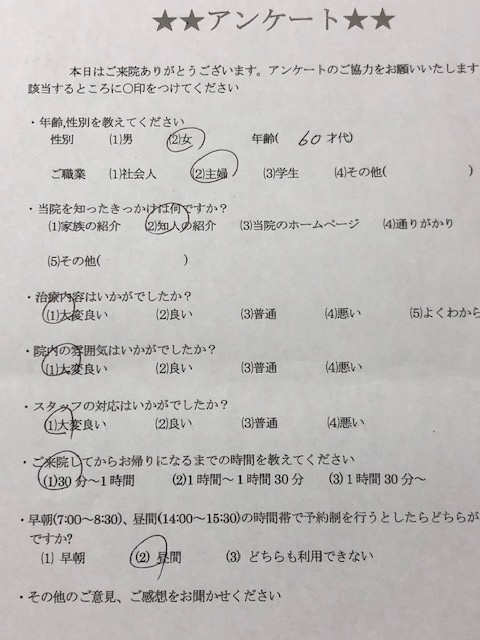 ★★アンケート★★
本日はご来院ありがとうございます。アンケートのご協力をお願いいたします
該当するところに○印をつけてください
・年齢,性別を教えてください
性別 (1)男 (2)女 年齢( 60 才代)
ご職業 (1)社会人 (2)主婦 (3)学生 (4)その他( )
・当院を知ったきっかけは何ですか？
(1)家族の紹介 (2)知人の紹介 (3)当院のホームページ (4)通りがかり
(5)その他( )
・治療内容はいかがでしたか？
(1)大変良い (2)良い (3)普通 (4)悪い (5)よくわから
・院内の雰囲気はいかがでしたか？
(1)大変良い (2)良い (3)普通 (4)悪い
・スタッフの対応はいかがでしたか？
(1)大変良い (2)良い (3)普通 (4)悪い
・ご来院してからお帰りになるまでの時間を教えてください
(1)30分～1時間 (2)1時間～1時間30分 (3)1時間30分～
・早朝(7:00～8:30)、昼間(14:00～15:30)の時間帯で予約制を行うとしたらどちらが
ですか?
(1) 早朝 (2) 昼間 (3) どちらも利用できない
・その他のご意見、ご感想をお聞かせください